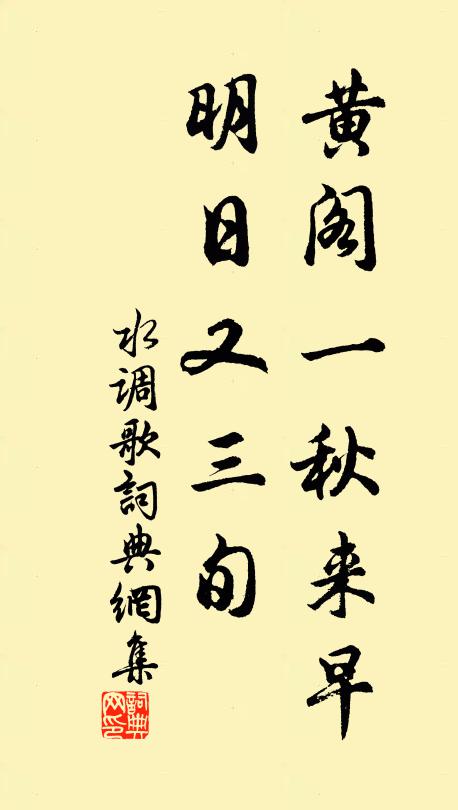 黄阁一秋来早
明日又三旬
水调歌詞典網集
詞典網印